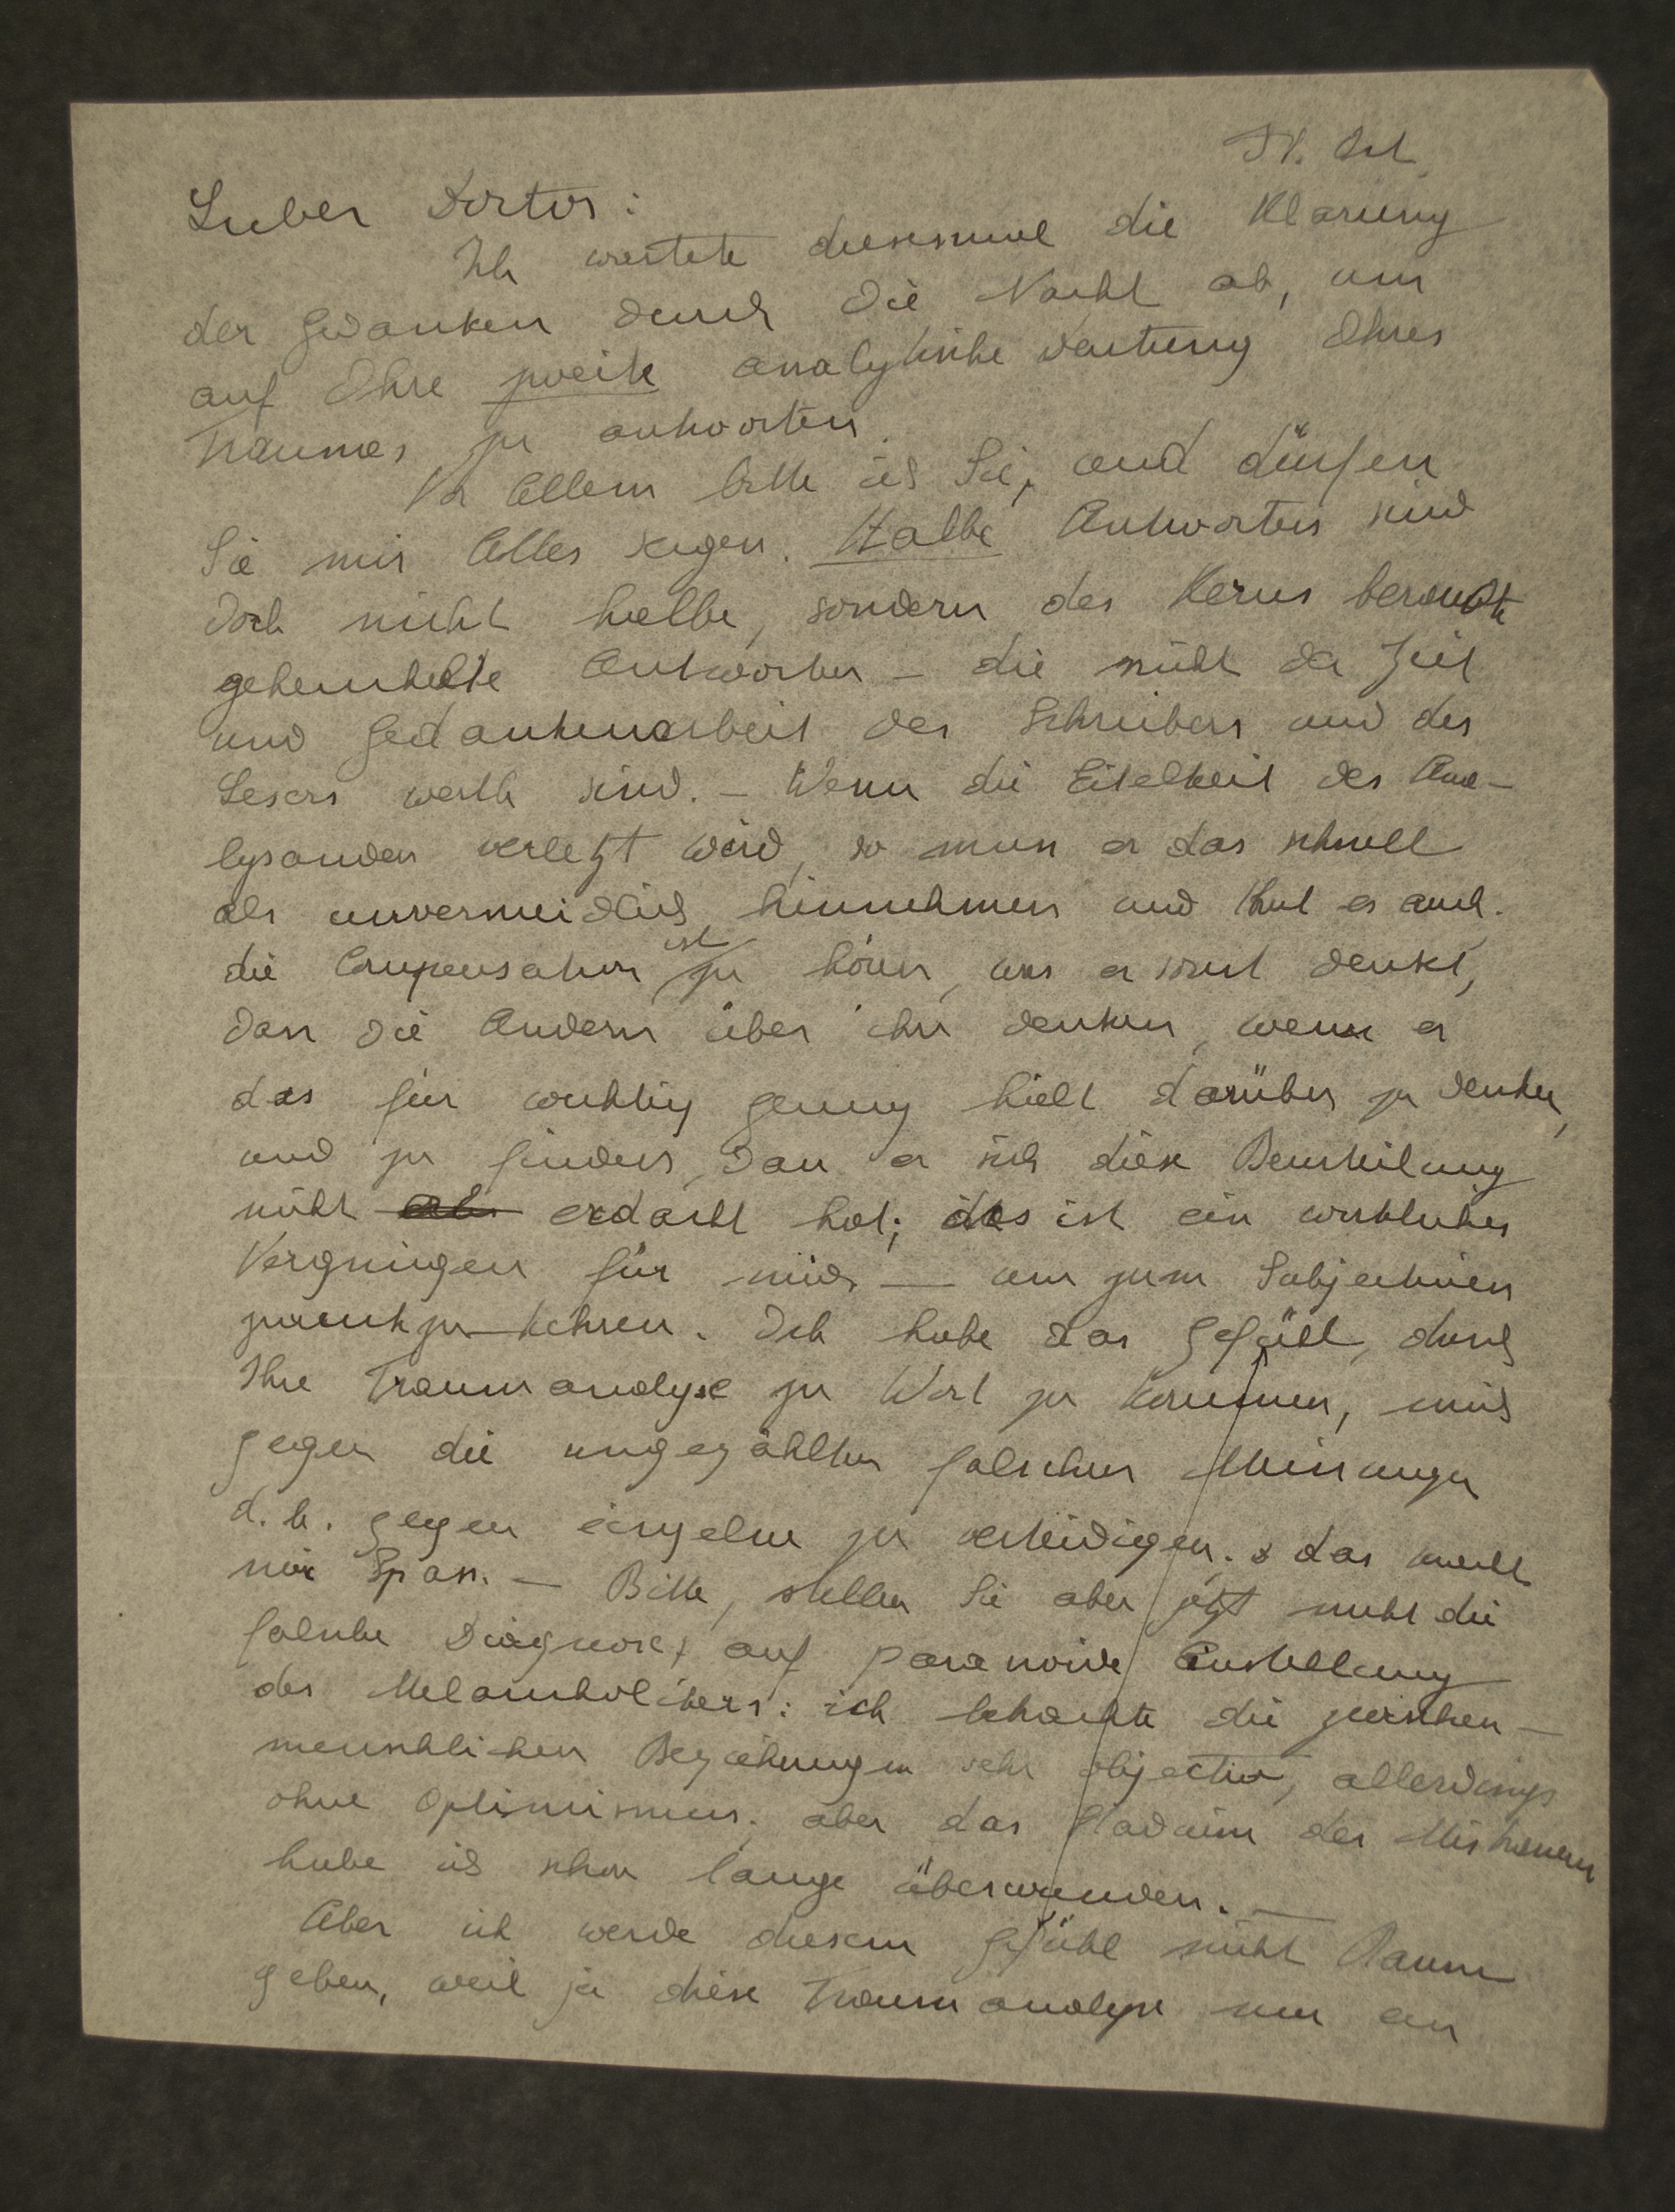 Lieber Doctor:
Ich wartete diesesmal die Klärung
der Gedanken durch die Nacht ab, um
auf Ihre zweite analytische Deutung Ihres
Traumes zu antworten.
Vor Allem bitte ich Sie, und dürfen
Sie mir Alles sagen. Halbe Antworten sind
doch nicht halbe, sondern des Kerns beraubte
geheimhafte Antworten – die nicht der Zeit
und Gedankenarbeit des Schreibers und des
Lesers werth sind. – Wenn die Eitelkeit des Ana-
lysanden verletzt wird, so muss er das schnell
als unvermeidlich hinnehmen und thut es auch.
die Compensation ist zu hören, was er sonst denkt,
dass die Andern über ihn denken, wenn er
das für wichtig genug hielt darüber zu denken,
und zu finden, dass er sich diese Beurteilung
nicht erdacht hat; das ist ein wirkliches
Vergnügen für mich — um zum Subjectiven
zurückzukehren. Ich habe das Gefühl, durch
Ihre Traumanalyse zu Wort zu kommen, mich
gegen die ungezählten falschen Meinungen
d.h. gegen einzelne zu verteidigen. das macht
mir Spass. — Bitte, stellen Sie aber jetzt nicht die
falsche Diagnose, auf paranoide Einstellung
des Melancholikers: ich betrachte die zwischen-
menschlichen Beziehungen sehr objectiv, allerdings
ohne Optimismus; aber das Stadium des Misstrauens
habe ich schon lange überwunden. —
Aber ich werde diesem Gefühl nicht Raum
geben, weil ja diese Traumanalyse nur ein